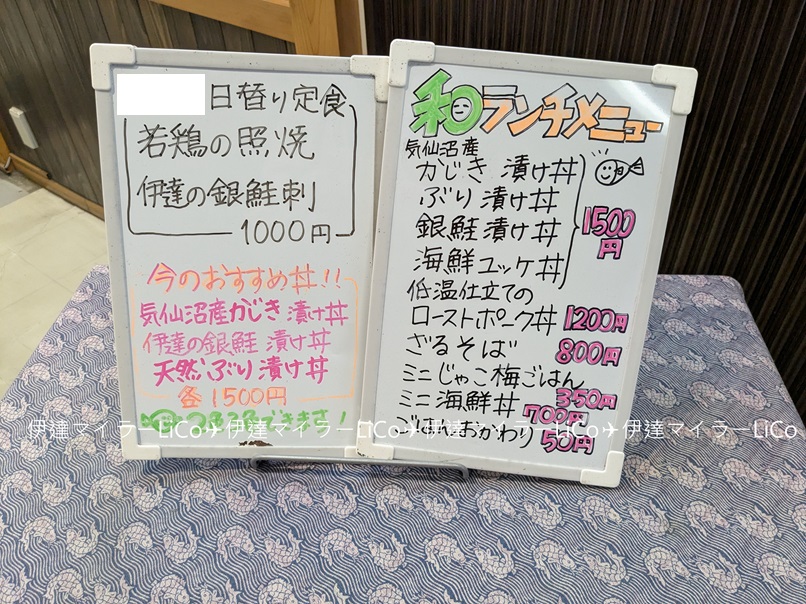 日替り定食
若鶏の照焼
伊達の銀鮭刺
1000円
今のおすすめ丼!!
気仙沼産かじき漬け丼
伊達の銀鮭漬け丼
天然ぶり漬け丼
各1500円
できます!
和ランチメニュー
気仙沼産
かじき漬け丼
ぶり漬け丼
銀鮭漬け丼
海鮮ユッケ丼
1500円
低温仕立ての
ローストポーク丼 1200円
ざるそば 800円
ミニじゃこ梅ごはん
350円
ミニ海鮮丼 700円
ごはんおかわり 50円
伊達マイラーLiCo✈伊達マイラーLiCo✈伊達マイラーLiCo✈伊達マイラーLiCo